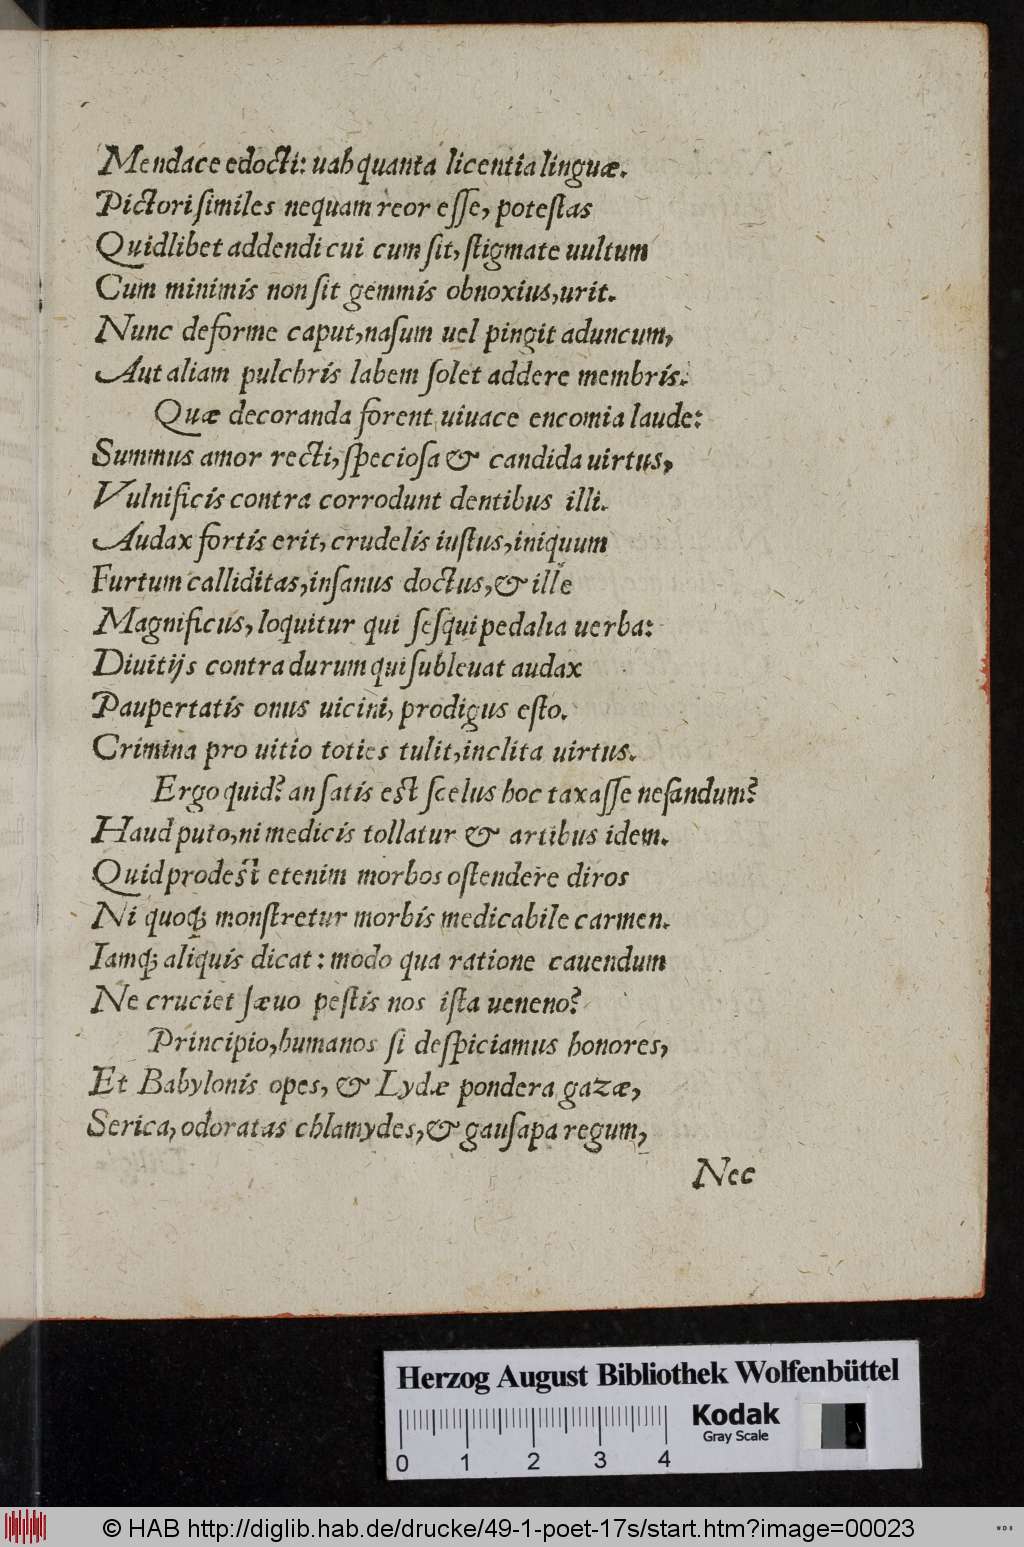 Mendace edocti: uah quanta licentia linguæ.
Pictori similes nequam reor esse, potestas
Quidlibet addendi cui cum sit, stigmate uultum
Cum minimis non sit gemmis obnoxius, urit.
Nunc deforme caput, nasum uel pingit aduncum,
Aut aliam pulchris labem solet addere membris.
Quæ decoranda forent uiuace encomia laude:
Summus amor recti, speciosa & candida uirtus,
Vulnificis contra corrodunt dentibus illi.
Audax fortis erit, crudelis iustus, iniquum
Furtum calliditas, insanus doctus, & ille
Magnificus, loquitur qui sesquipedalia uerba:
Diuitijs contra durum qui subleuat audax
Paupertatis onus uicini, prodigus esto.
Crimina pro uitio toties tulit, inclita uirtus.
Ergo quid? an satis est scelus hoc taxasse nefandum?
Haud puto, ni medicis tollatur & artibus idem.
Quid prodest etenim morbos ostendere diros
Ni quoq; monstretur morbis medicabile carmen.
Iamq; aliquis dicat: modo qua ratione cauendum
Ne cruciet sæuo pestis nos ista ueneno?
Principio, humanos si despiciamus honores,
Et Babylonis opes, & Lydæ pondera gazæ,
Serica, odoratas chlamydes, & gausapa regum,
Nec
Herzog August Bibliothek Wolfenbüttel
Kodak
Gray Scale
0 1 2 3 4
© HAB http://diglib.hab.de/drucke/49-1-poet-17s/start.htm?image=00023